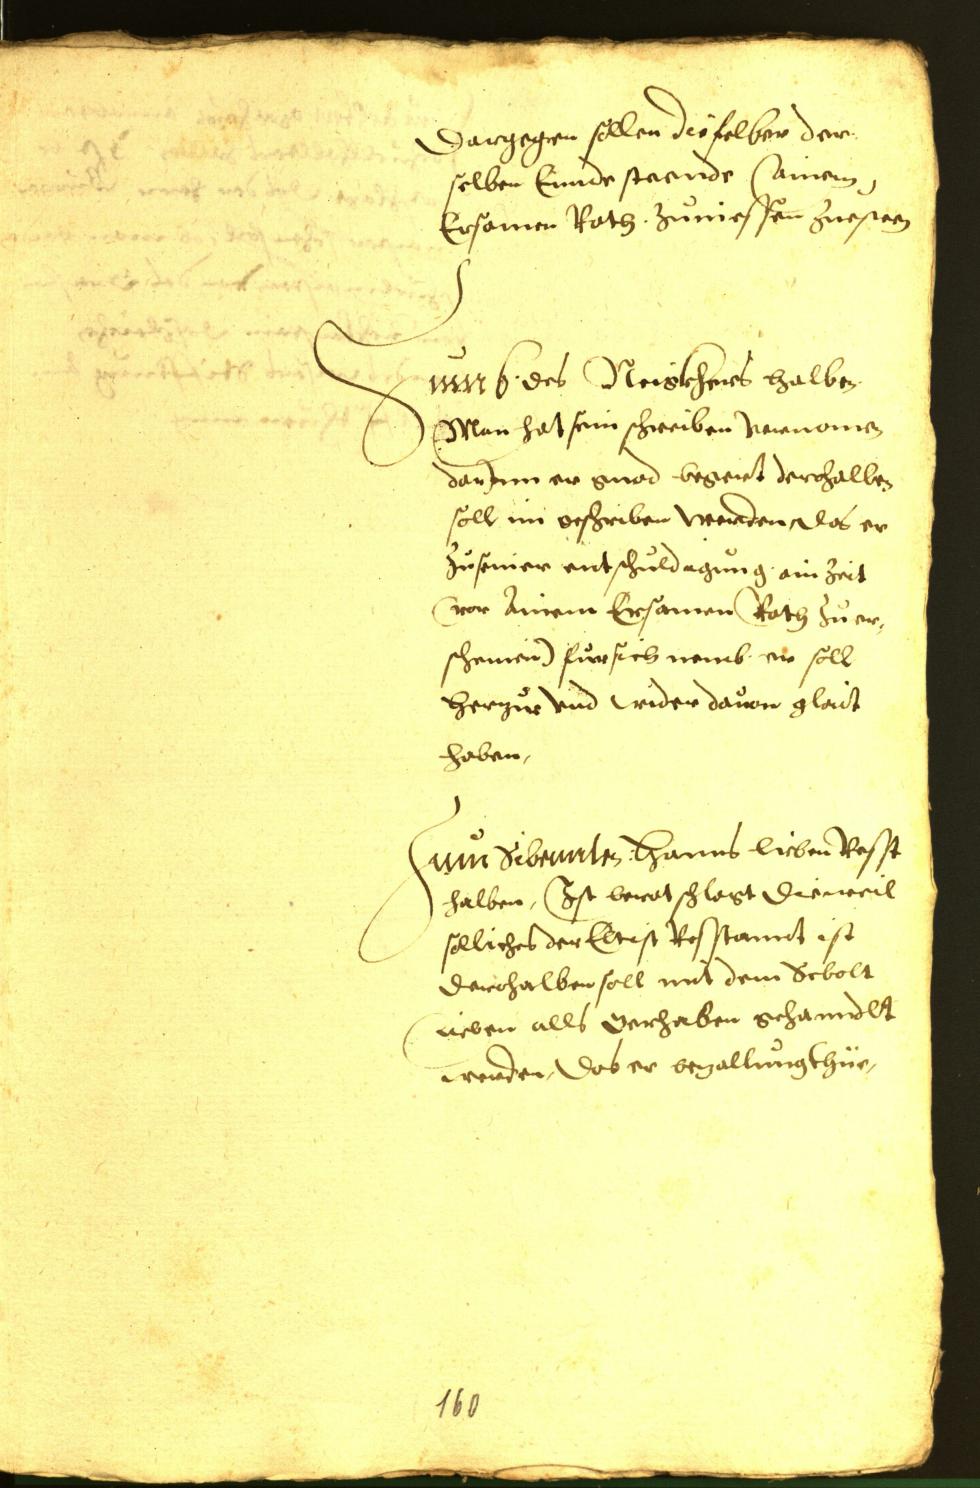 Dargegen sollen dieselben der
selben Ennde steende ainem
Ersamen Rath. zuniessen zuesteen
Zum 6. des Neiskhers halben
Man hat sein schreiben vernomen
darInn er gnad begert derohalben
soll im geschriben werden, das er
zu seiner entschuldigung ain Zeit
vor Ainem Ersamen Rath zu er,
scheinen) fur sich nemb. er soll
herzue vnd wider dauon glait
haben,
Zum Sibennten. Hanns lieben Resst
halben, Ist beratschlagt Dieweil
solliches der Eltist Resstannt ist
derohalben soll mit dem Sebolt
lieben alls gerhaben gehanndlt
werden, das er bezallung thüe,
160